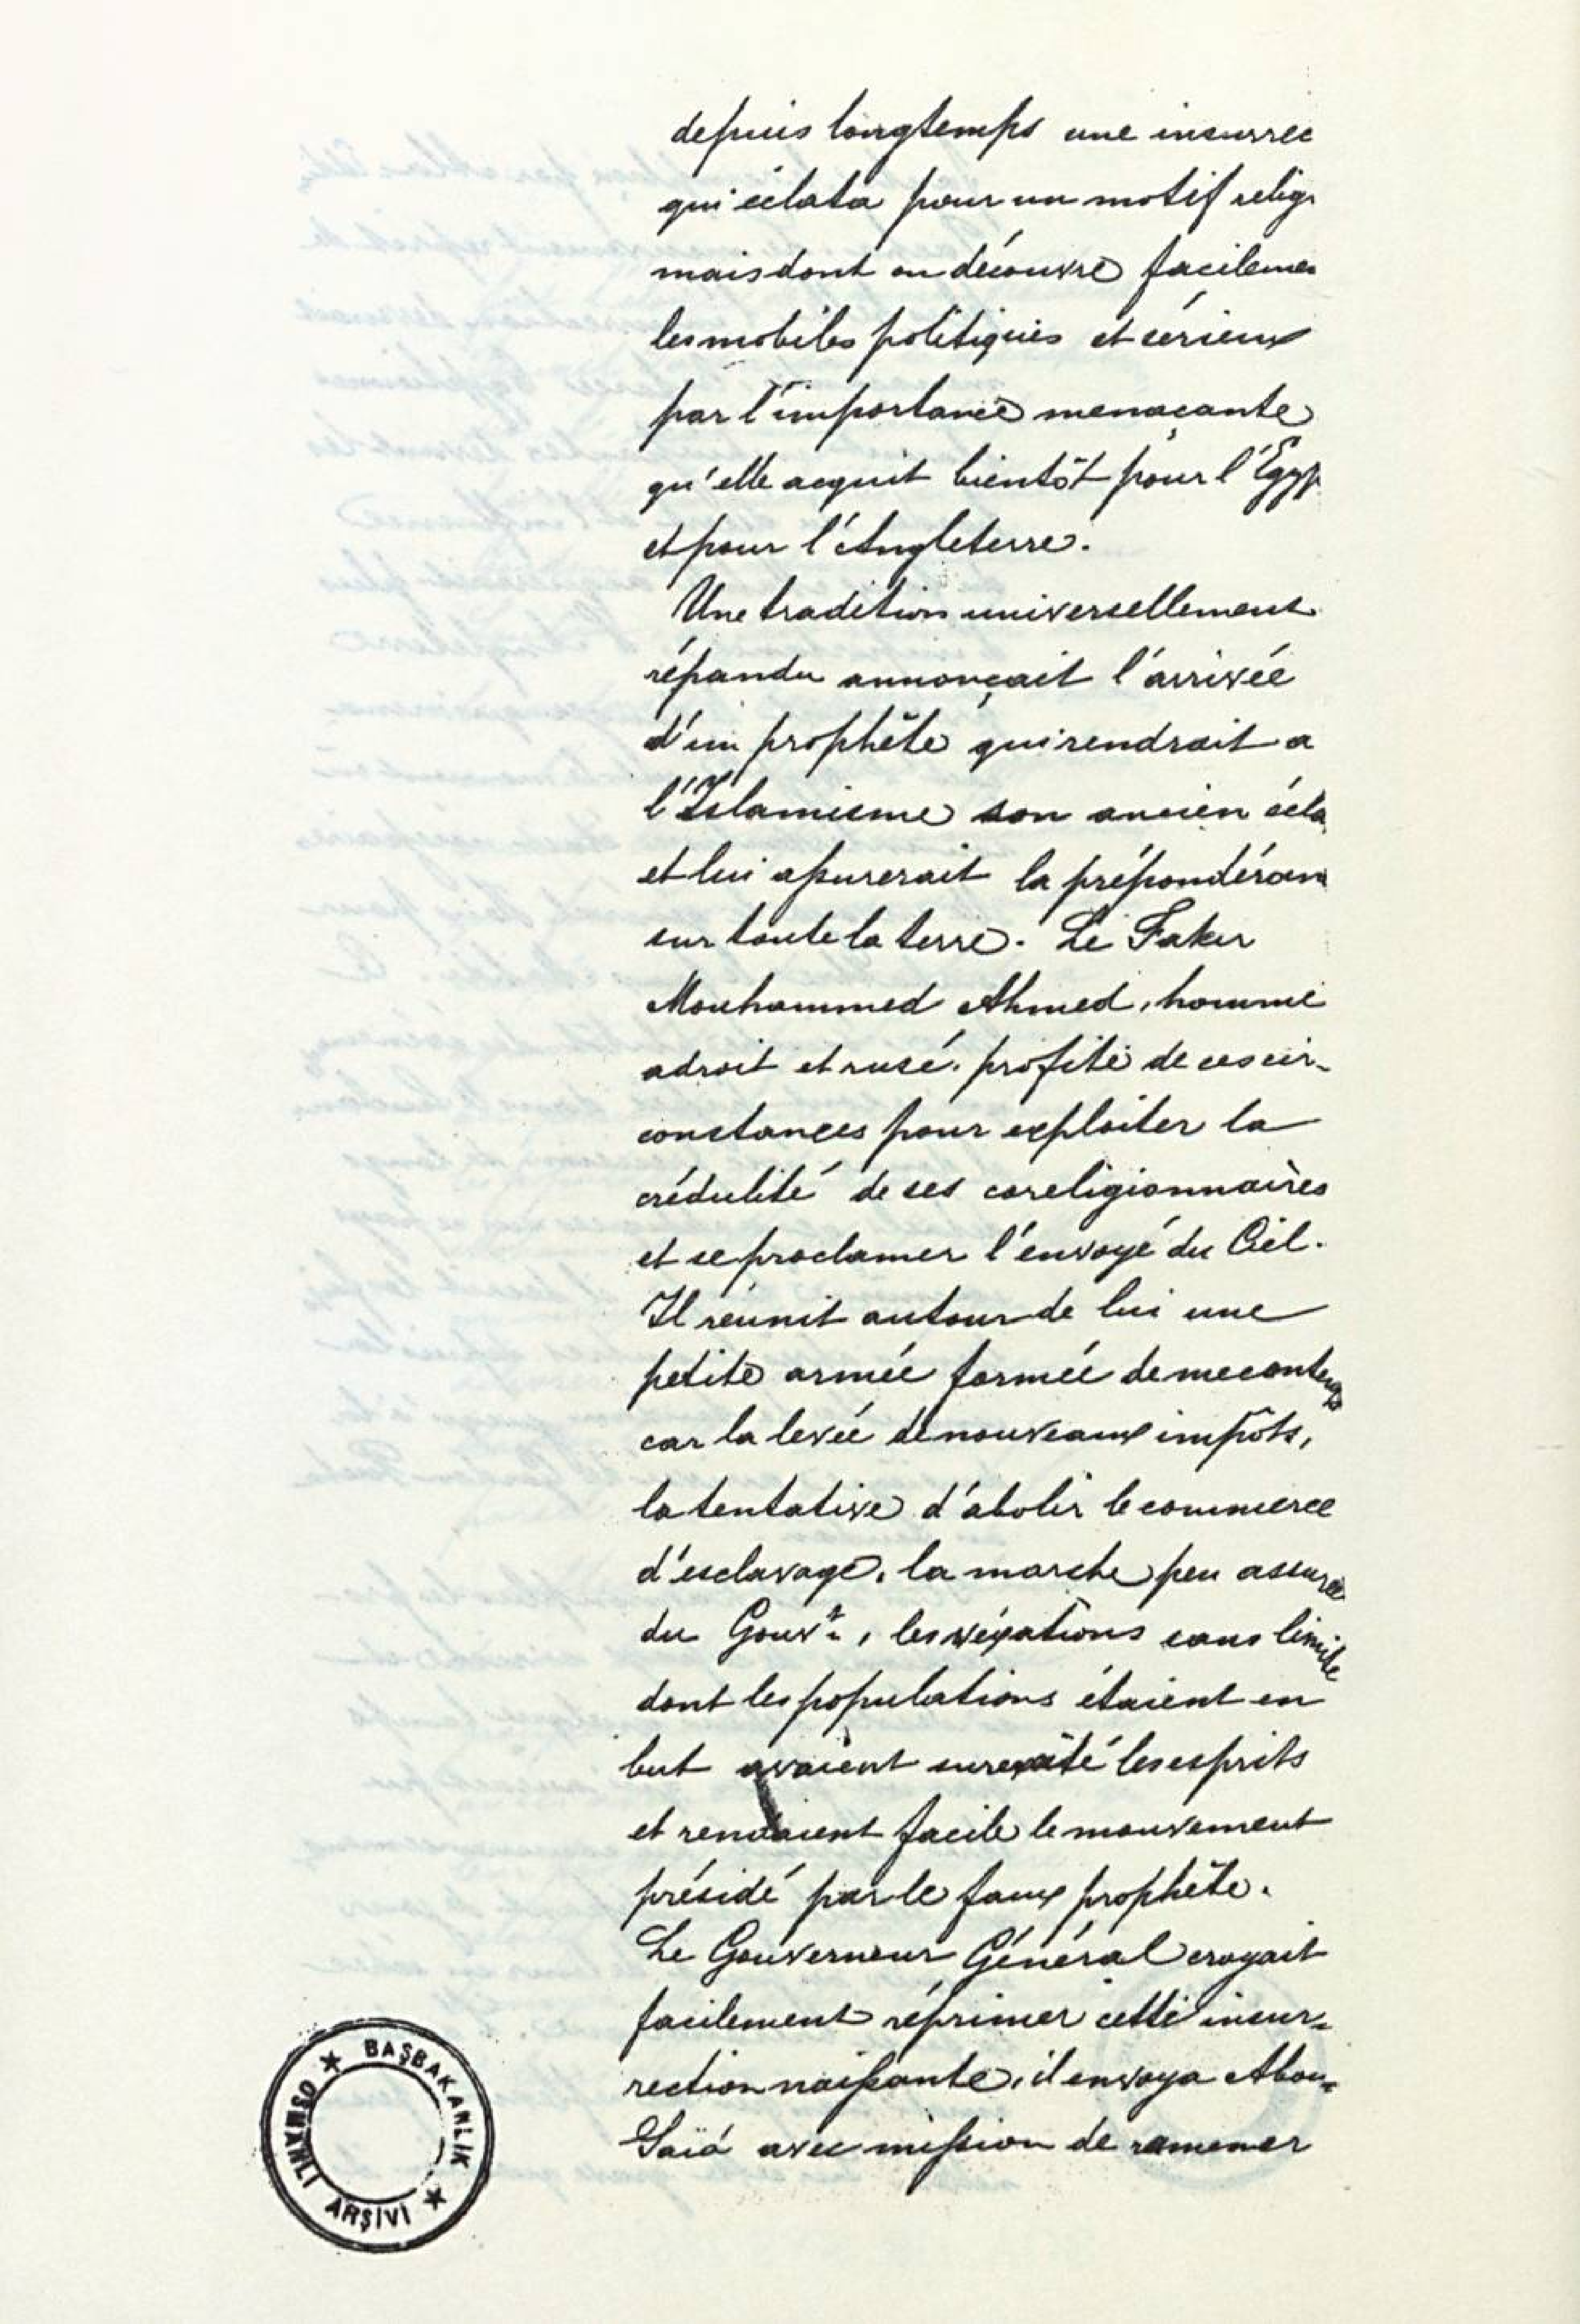 depuis longtemps une insurrec
qui éclata pour un motif relig
mais dont on découvre facileme
les mobiles politiques et sérieux
par l'importance menaçante
qu'elle acquit bientôt pour l'Egyp
et pour l'Angleterre.
Une tradition universellement
répandu annonçait l'arrivée
d'un prophête qui rendrait a
l'Islamisme son ancien écla
et lui assurerait la prépondéran
sur toute la terre. Le Faker
Mouhammed Ahmed, homme
adroit et rusé, profité de ces cir-
constances pour exploiter la
crédulité de ses coreligionnaires
et se proclamer l'envoyé du Ciel.
Il réunit autour de lui une
petite armée formée de mecontents
car la levée de nouveaux impôts,
la tentative d'abolir le commerce
d'esclavage, la marche peu assurée
du Gouvt, les véxations sans limite
dont les populations étaient en
but avaient surexcité les esprits
et rendaient facile le mouvement
présidé par le faux prophête.
Le Gouverneur Général croyait
facilement réprimer cette insur-
rection naissante, il envoya Abou-
Saïd avec mission de ramener
BAŞBAKANLIK
OSMANLI
ARŞİVİ